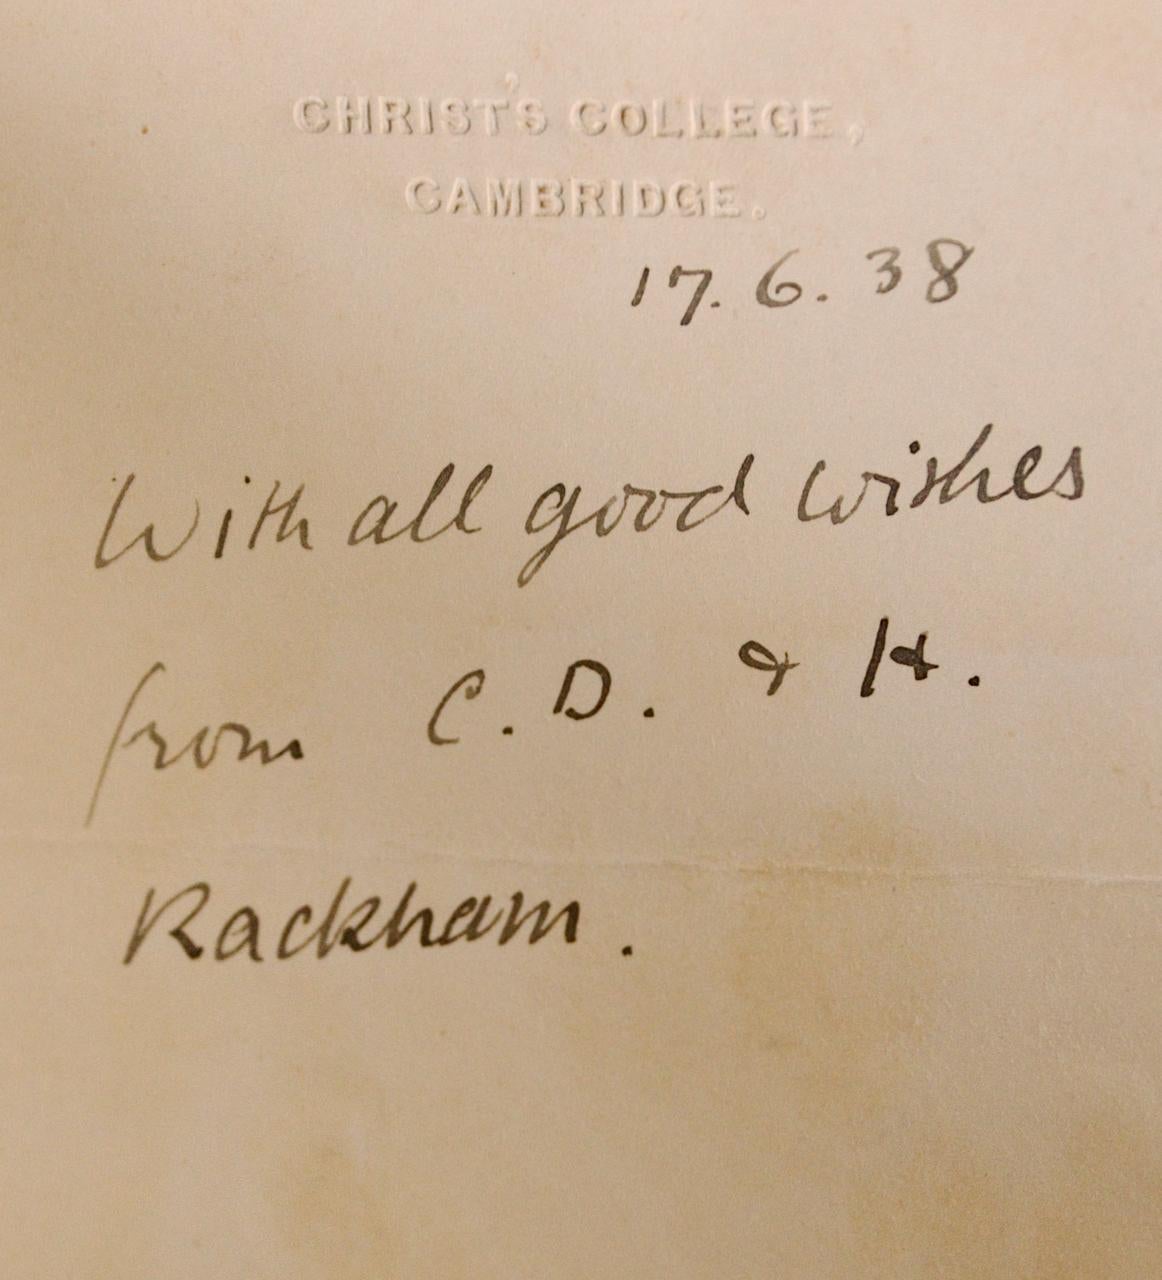 CHRIST'S COLLEGE,
CAMBRIDGE.
17. 6. 38
With all good wishes
from C. D. & H.
Rackham.